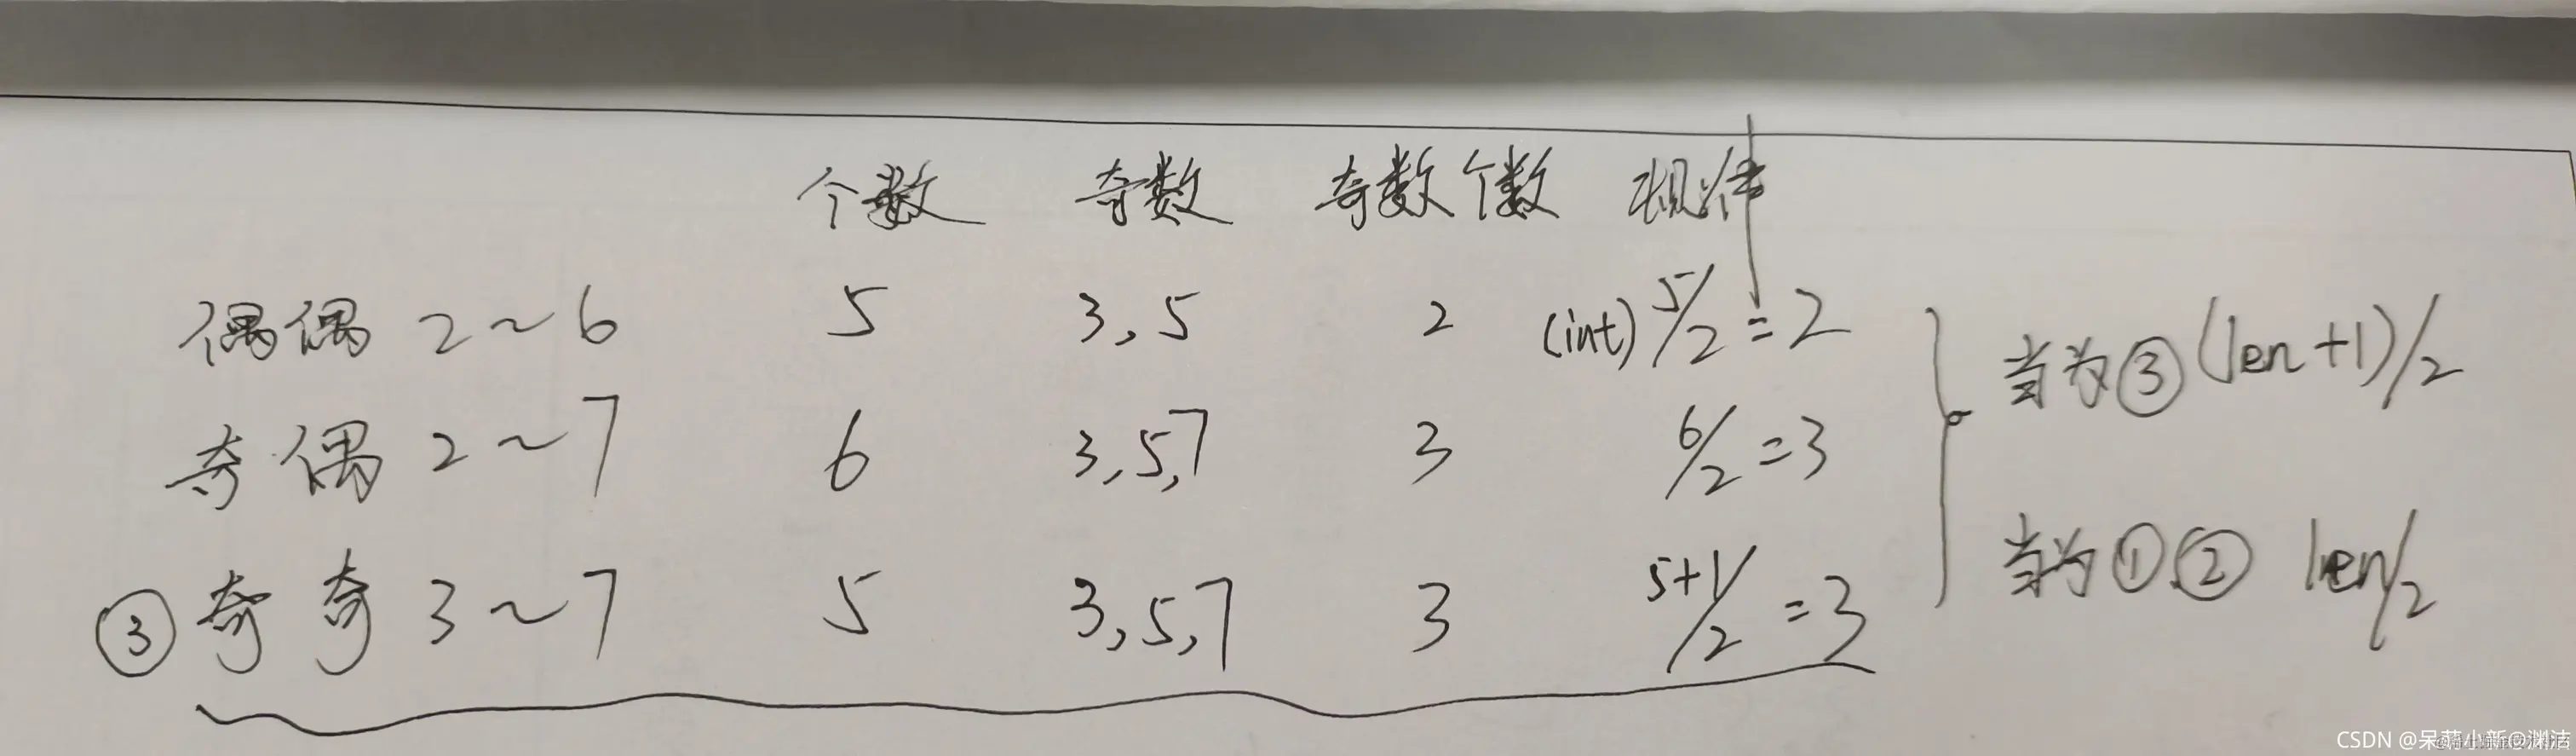 个数 奇数 奇数个数 规律
偶偶 2~6 5 3,5 2 (int) 5/2=2
当为③(len+1)/2
奇偶 2~7 6 3,5,7 3 6/2=3
③奇奇 3~7 5 3,5,7 3 5+1/2=3
当为①② len/2
CSDN @呆萌小新@渊洁